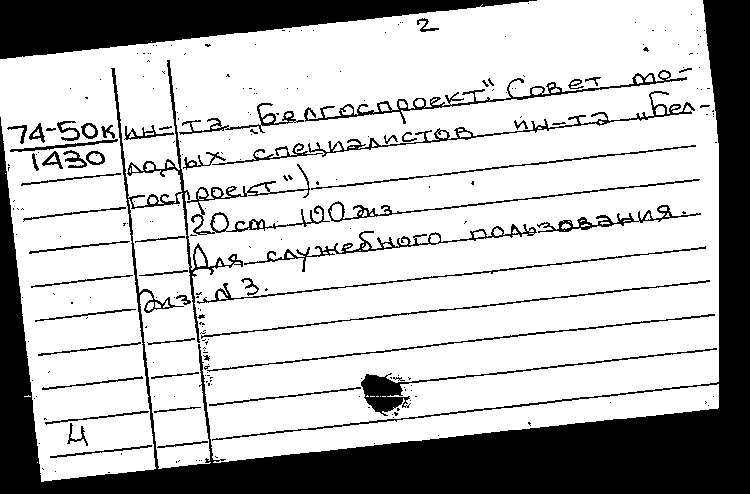 2
74-50к ин-та „Белгоспроект". Совет мо-
1430 лодых специалистов ин-та „Бел-
госпроект").
20 ст. 100 экз.
Для служебного пользования.
Экз. N 3.